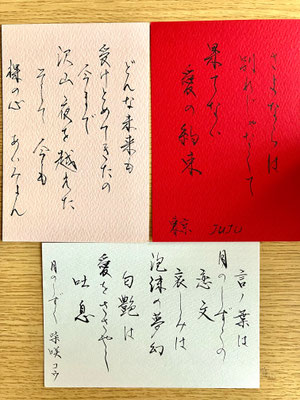 さよならは
別れじゃなくて
果てない
愛の約束
東京 JUJU
どんな未来も
受けとめてきたの
今まで
沢山夜を越えた
そして 今も
裸の心 あいみょん
言ノ葉は
月のしずくの
恋文
哀しみは
泡沫の夢幻
匂艶は
愛をささやく
吐息
月のしずく 柴咲コウ